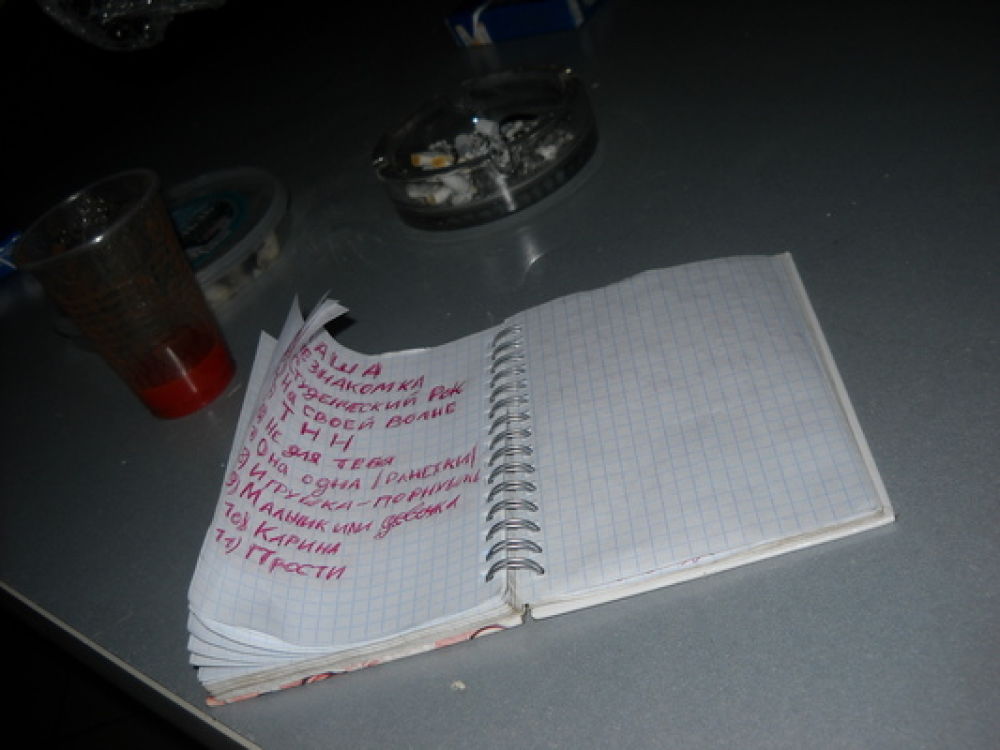 АША
НЕЗНАКОМКА
СТУДЕНЧЕСКИЙ РОК
На СВОЕЙ ВОЛНЕ
Т Н Н
Не для тебя
Она одна (РАНЕТКИ)
ИГРУШКА-ПОРНУШКА
9) МАЛЬЧИК или девочка
10) КАРИНА
11) Прости